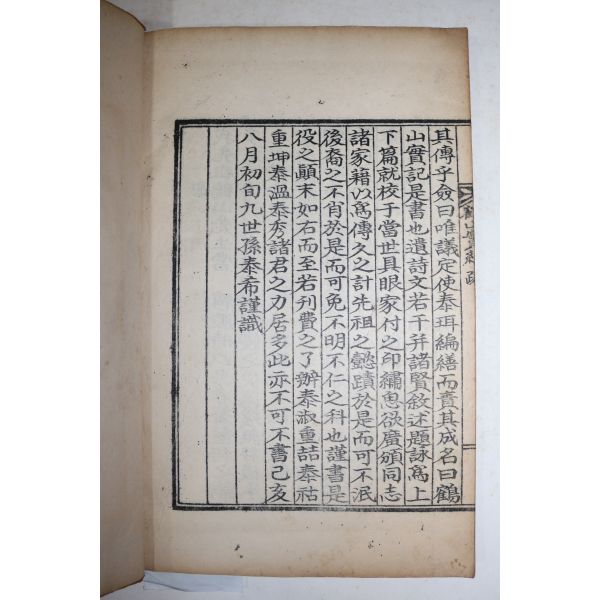 其傳乎僉曰唯議定使泰珥編繕而責其成名曰鶴
山實記是書也遺詩文若干幷諸賢敘述題詠爲上
下篇就校于當世具眼家付之印繡思欲廣頒同志
諸家藉以爲傳久之計先祖之懿蹟於是而可不泯
後裔之不肖於是而可免不明不仁之科也謹書是
役之顚末如右而至若刊費之了辦泰淑重喆泰祜
重坤泰溫泰秀諸君之力居多此亦不可不書己亥
八月初旬九世孫泰希謹識